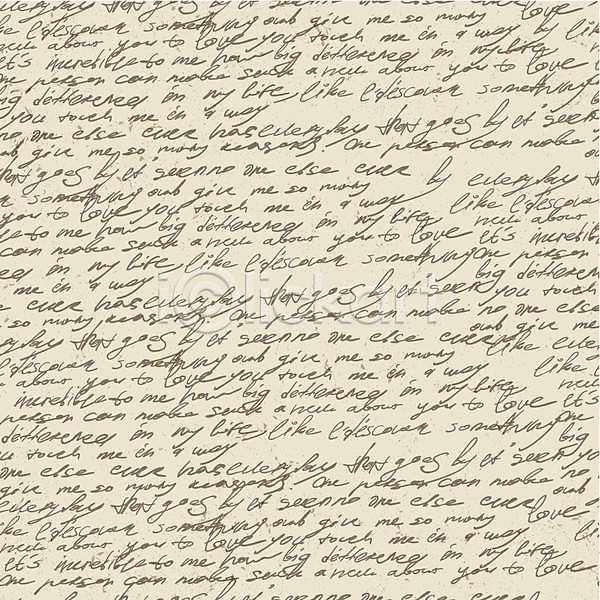 like I discover something and give me so many by
a new about you to love you touch me in a way like
it's incredible to me how big difference in my life
One person can make such a new about you to love
big difference in my life, like I discover something
you touch me in a way
no one else ever has everyday that goes by et seen no
and give me so many reasons, One person can make
that goes by et seen no one else ever
something and give me so many by everyday
you to love you touch me in a way like I discover
to me how big difference in my life new about
can make such a new about you to love it's incredible
in my life like I discover something One person
me in a way big difference
else ever has everyday that goes by et seen you
me so many reasons, One person can make no one else
that goes by et seen no one else ever and give me
something and give me so many by everyday
about you to love you touch me in a way like I
incredible to me how big difference in my life new
person can make such a new about you to love it's
difference in my life, like I discover something One
touch me in a way big
one else ever has everyday that goes by et seen yo
give me so many reasons, One person can make no
everyday that goes by et seen no one else ever and
like I discover something and give me so many by
new about you to love you touch me in a way like
incredible to me how big difference in my life
One person can make such a new about you to love
iclickart